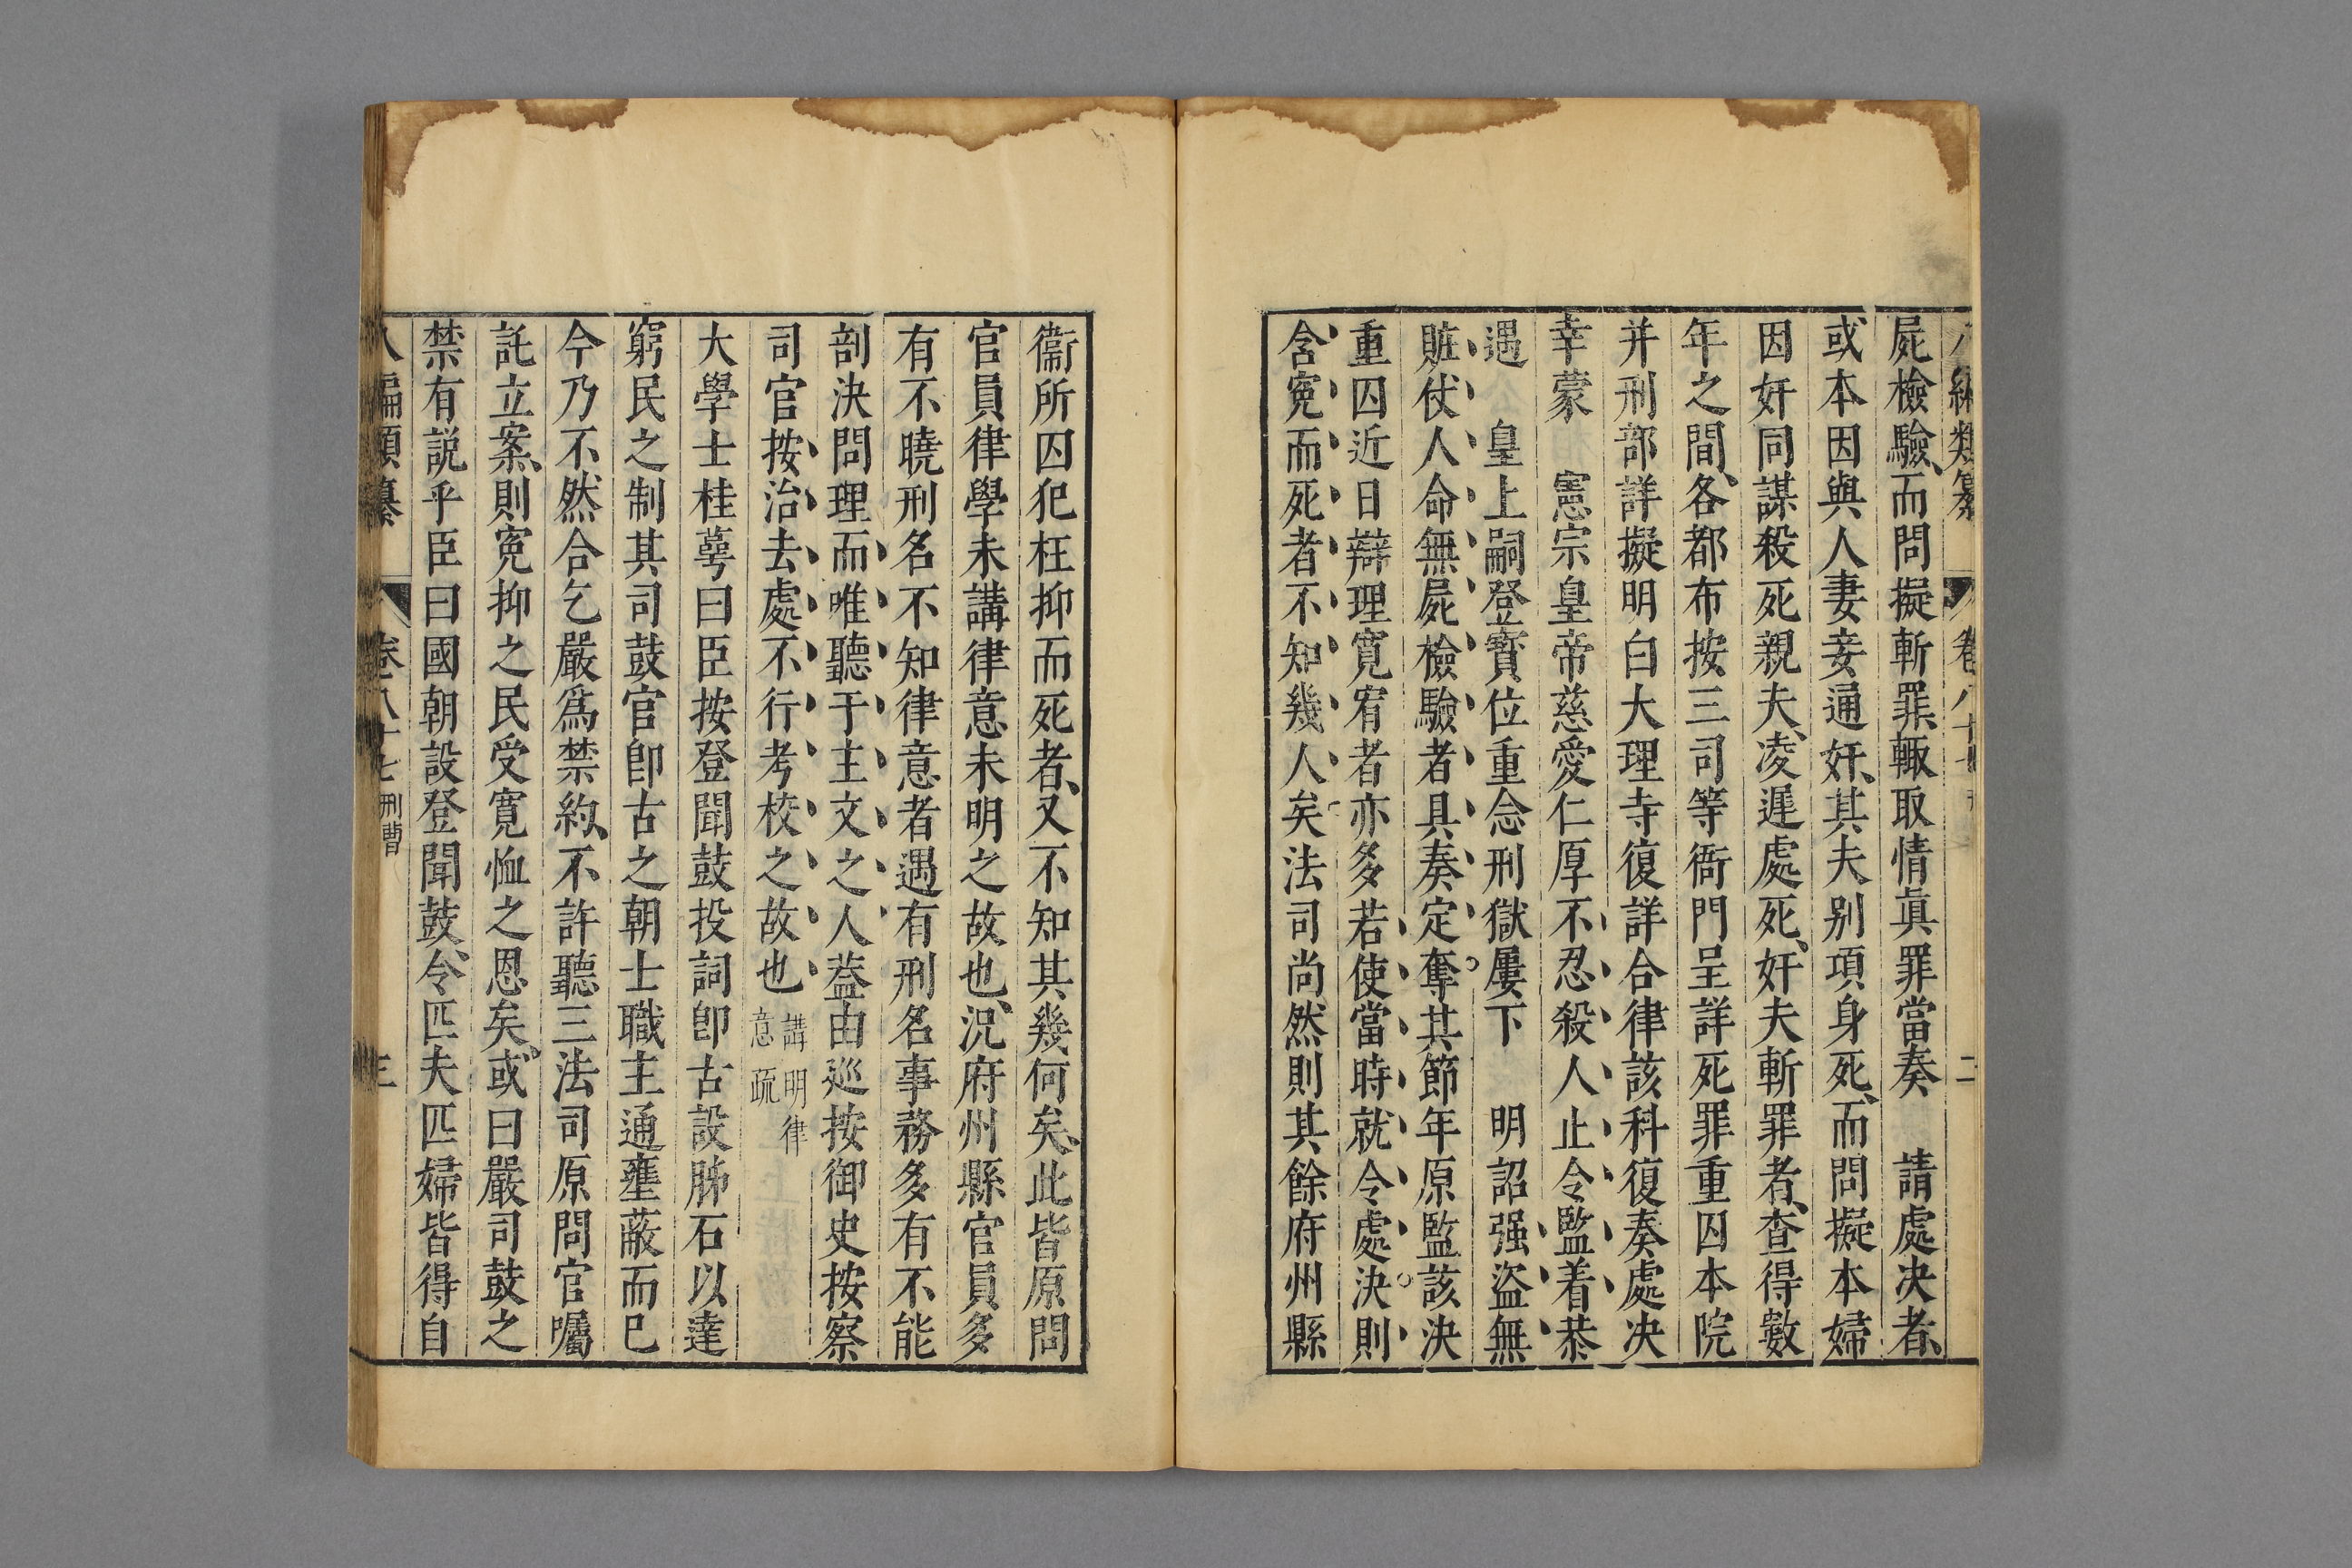 屍檢驗而問擬斬罪輙取情眞罪當奏　請處决者
或本因與人妻妾通奸其夫别項身死而問擬本婦
因奸同謀殺死親夫凌遲處死奸夫斬罪者查得數
年之間各都布按三司等衙門呈詳死罪重囚本院
并刑部詳擬明白大理寺復詳合律該科復奏處决
幸蒙　憲宗皇帝慈愛仁厚不忍殺人止令監着恭
遇　皇上嗣登寳位重念刑獄屢下　明詔强盜無
賍仗人命無屍檢驗者具奏定奪其節年原監該決
重囚近日辯理寛宥者亦多若使當時就令處決則
含寃而死者不知幾人矣法司尚然則其餘府州縣
衞所囚犯枉抑而死者又不知其幾何矣此皆原問
官員律學未講律意未明之故也況府州縣官員多
有不曉刑名不知律意者遇有刑名事務多有不能
剖決問理而唯聽于主文之人葢由巡按御史按察
司官按治去處不行考校之故也
講明律
意疏
大學士桂萼曰臣按登聞鼓投詞卽古設肺石以達
窮民之制其司鼓官卽古之朝士職主通壅蔽而已
今乃不然合乞嚴爲禁約不許聽三法司原問官囑
託立案則寃抑之民受寛恤之恩矣或曰嚴司鼓之
禁有説乎臣曰國朝設登聞鼓令匹夫匹婦皆得自
八編類纂　卷八十七 刑曹　三